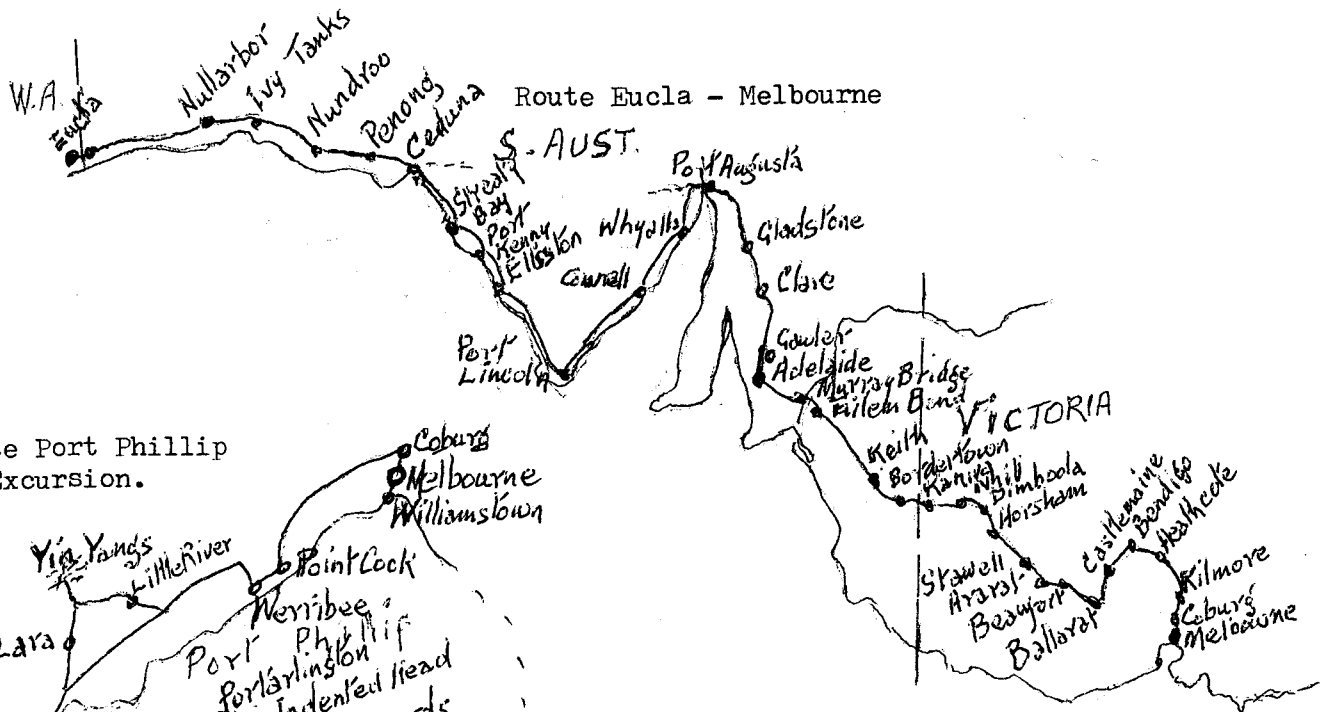 W.A.
Eucla
Nullarbor
Ivy Tanks
Nundroo
Penong
Ceduna
Route Eucla - Melbourne
S. AUST.
Streaky
Bay
Port
Kenny
Elliston
Port
Lincoln
Cowell
Whyalla
Port Augusta
Gladstone
Clare
Gawler
Adelaide
Murray Bridge
Tailem Bend
VICTORIA
Keith
Bordertown
Kaniva
Nhill
Dimboola
Horsham
Stawell
Ararat
Beaufort
Ballarat
Castlemaine
Bendigo
Heathcote
Kilmore
Coburg
Melbourne
e Port Phillip
xcursion.
Coburg
Melbourne
Williamstown
You Yangs
Little River
Point Cock
Werribee
Lara
Port Phillip
Portarlington
Indented Head
ds